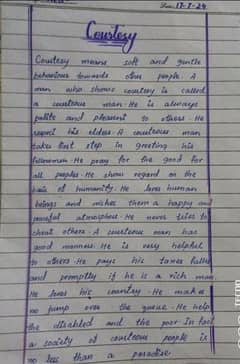 Date: 17-7-24
Courtesy
Courtesy means soft and gentle
behaviour towards other people. A
man who shows courtesy is called
a courteous man. He is always
polite and pleasent to others. He
respect his elders. A courteous man
takes first step in greeting his
fellowmen. He pray for the good for
all peoples. He show regard on the
basis of humanity. He loves human
beings and wishes them a happy and
peaceful atmosphere. He never tries to
cheat others. A courteous man has
good manners. He is very helpful
to others. He pays his taxes fully
and promptly if he is a rich man
He loves his country. He makes
no jump over the queue. He help
the disabled and the poor in fact
a society of courteous people is
no less than a paradise.